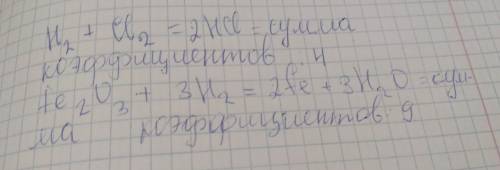 H₂ + Cl₂ = 2HCl = сумма
коэффициентов 4
Fe₂O₃ + 3H₂ = 2Fe + 3H₂O = сум-
ма коэффициентов 9